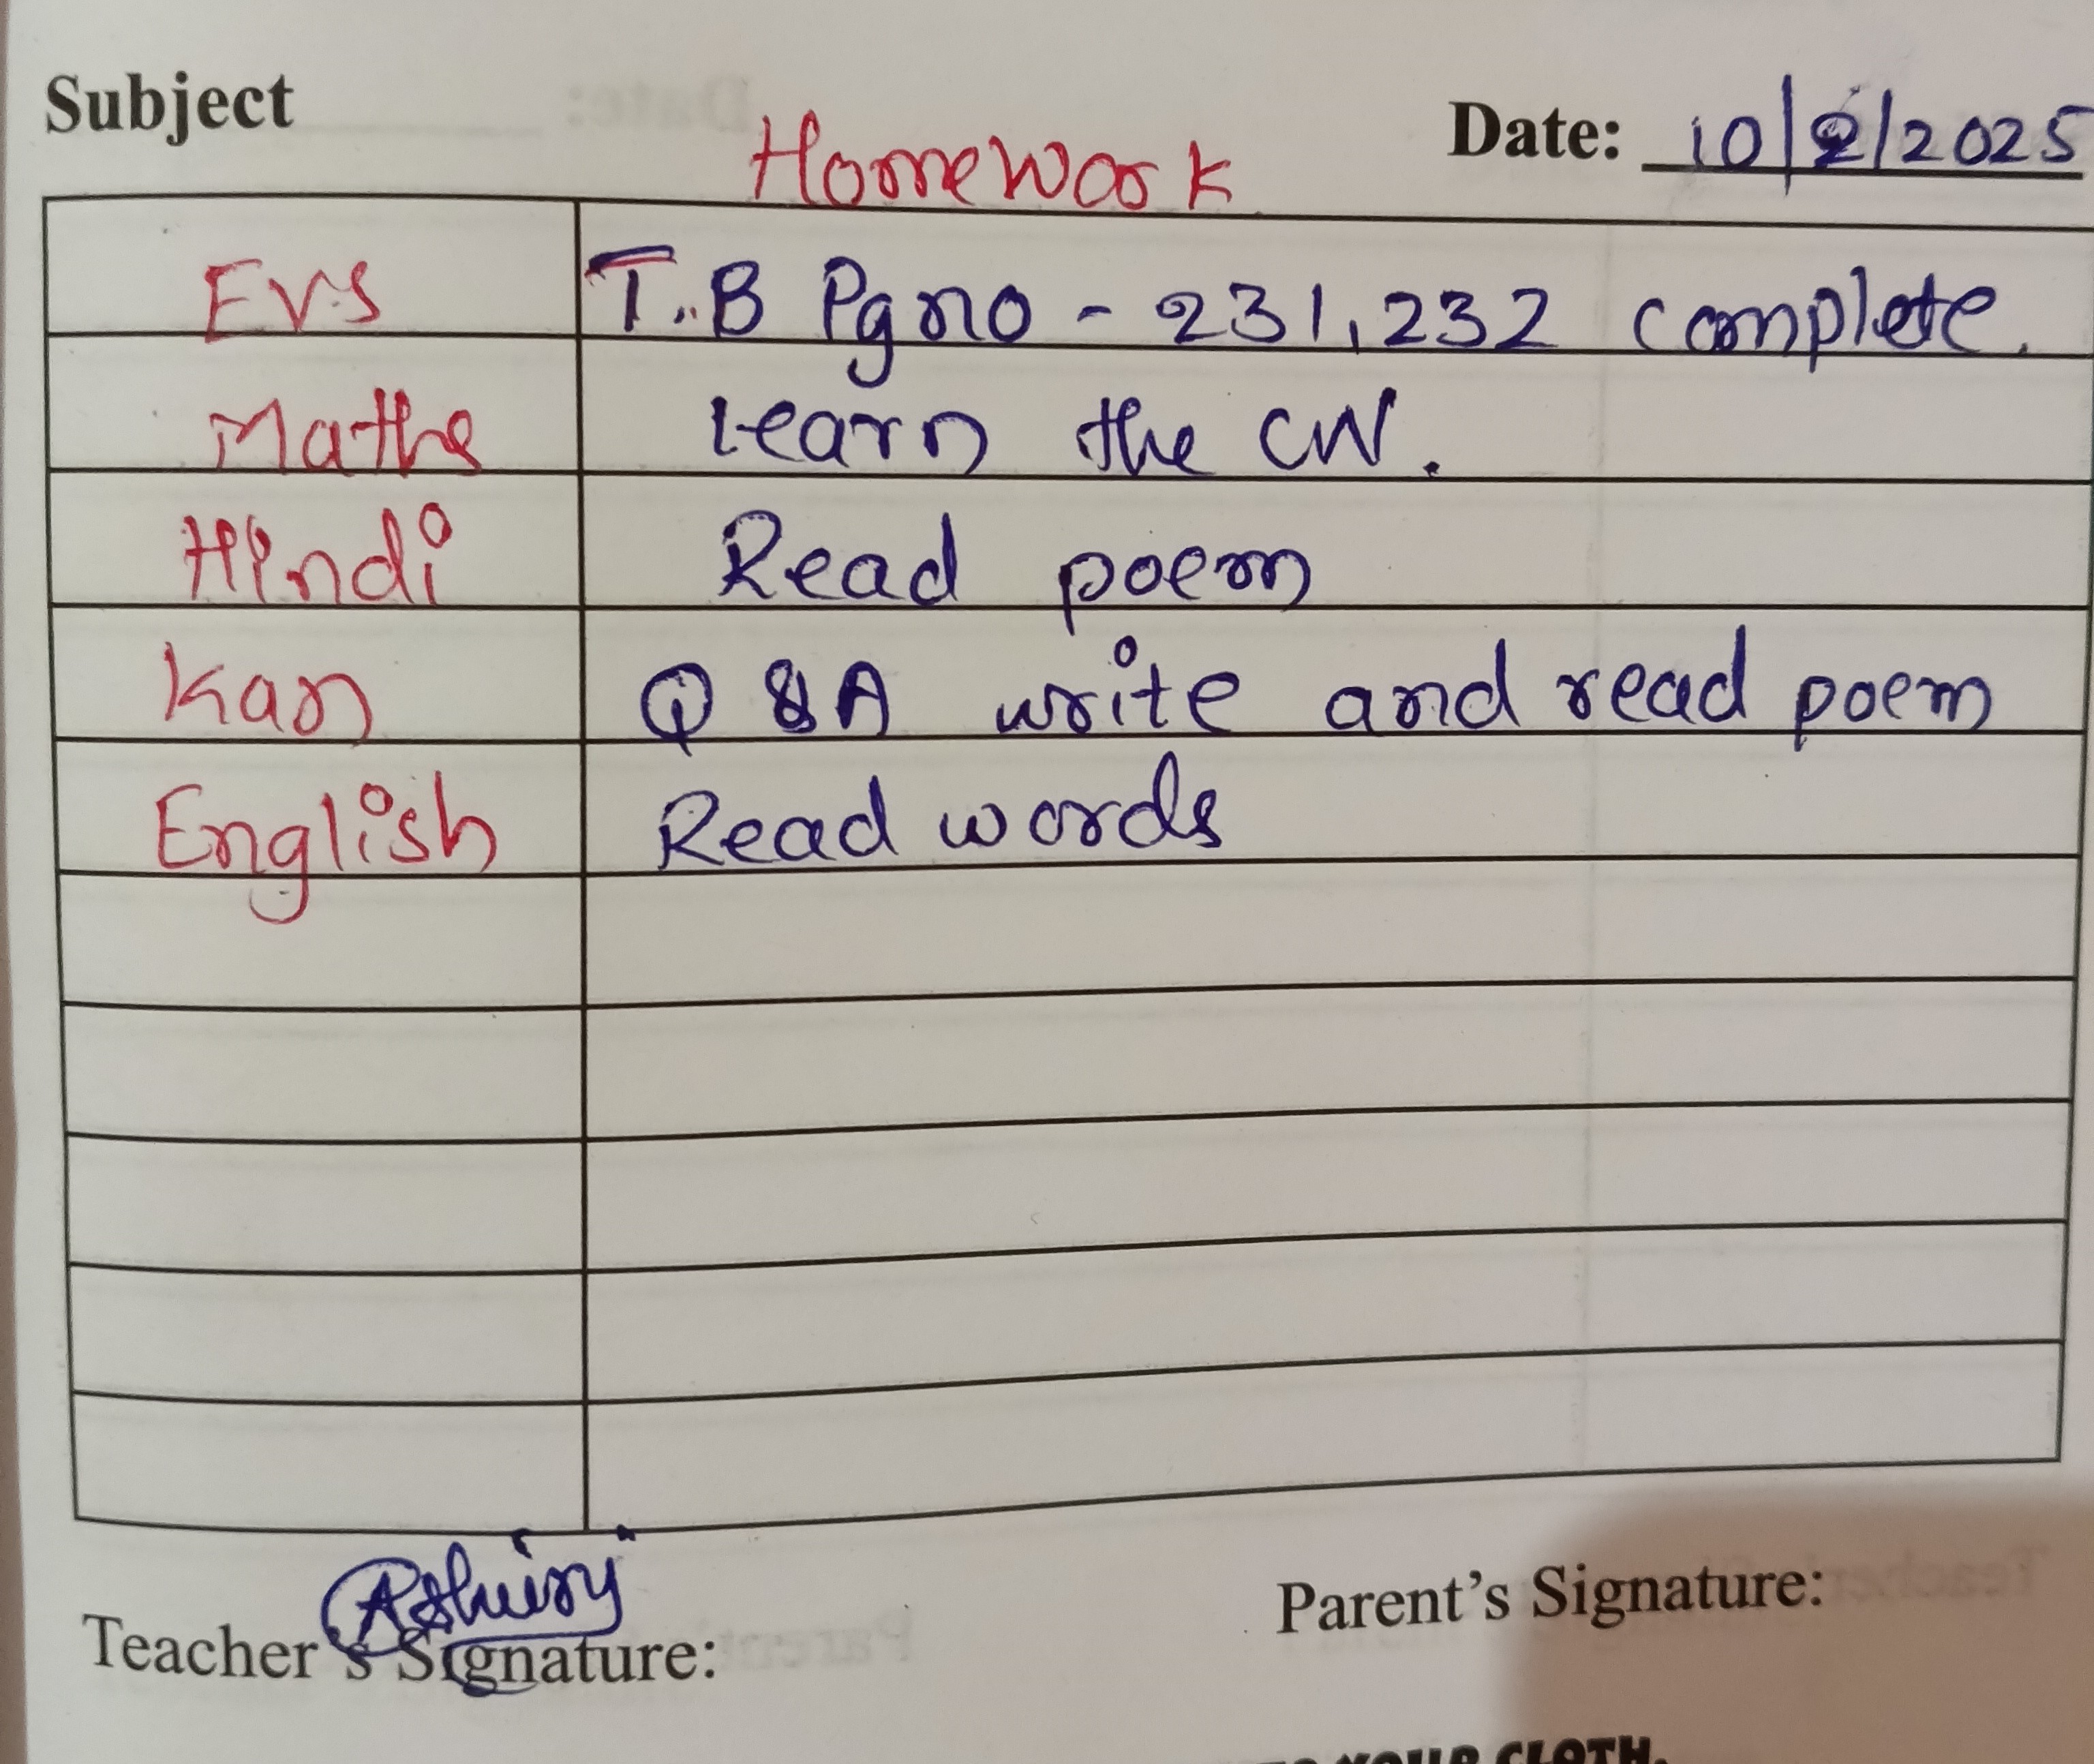 Subject
Homework
Date: 10/2/2025
EVS T.B Pg no - 231, 232 complete.
Maths Learn the CW.
Hindi Read poem
Kan Q & A write and read poem
English Read words
Teacher's Signature:
Parent's Signature:
YOUR CLOTH.